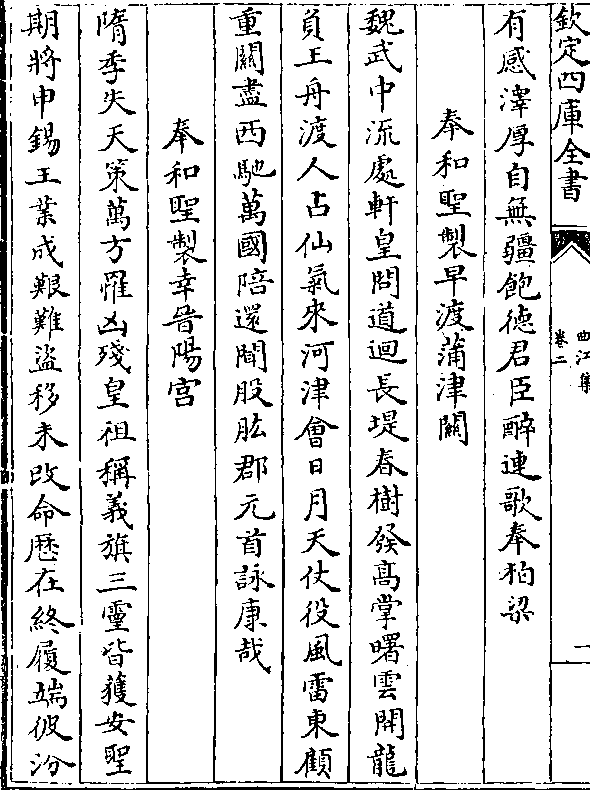 欽定四庫全書
曲江集
卷二
一
有感澤厚自無疆飽德君臣醉連歌奉柏梁
奉和聖製早渡蒲津關
魏武中流處軒皇問道迴長堤春樹發髙掌曙雲開龍
負王舟渡人占仙氣來河津會日月天仗役風雷東顧
重關盡西馳萬國陪還聞股肱郡元首詠康哉
奉和聖製幸晉陽宫
隋季失天策萬方罹凶殘皇祖稱義旗三靈皆獲安聖
期將申錫王業成艱難盜移未改命厯在終履端彼汾